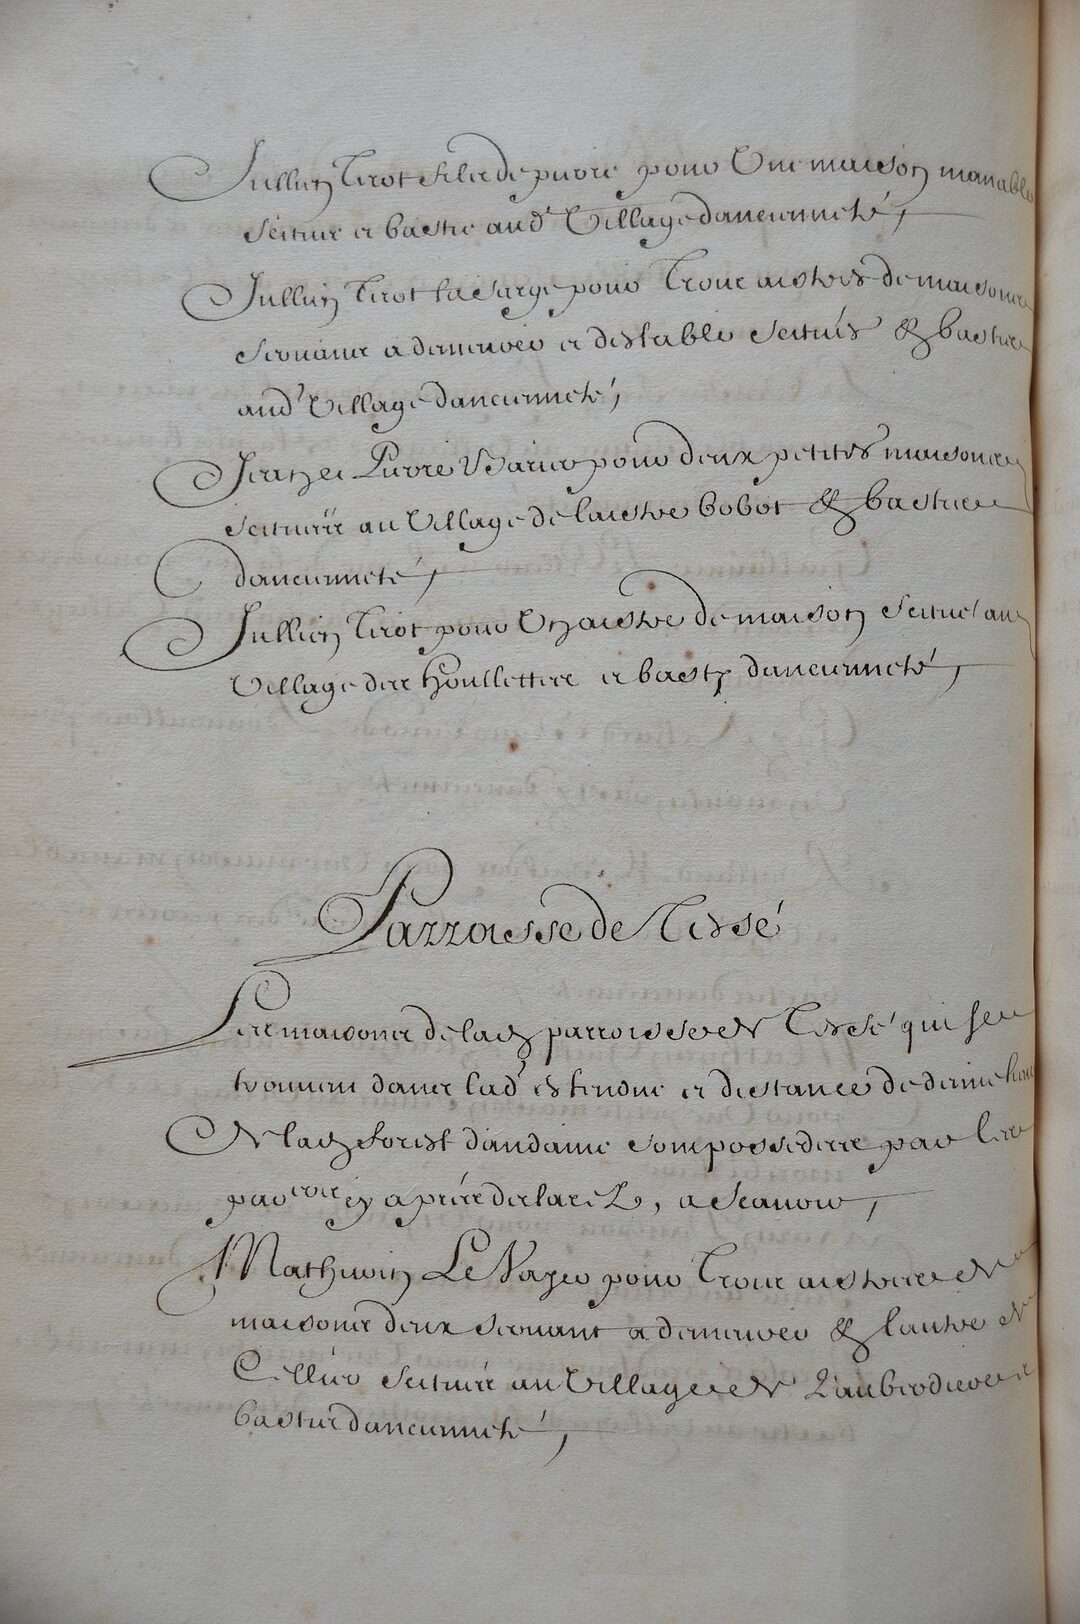 Jullien Tirot fils de pierre pour Une maison manable
scituee et bastie aud' Village dancienneté,
Jullien Tirot la sarge pour Trois aistres de maisons
servans a demeurer et destable scitués & bastis
aud' Village danciennete,
Jean et Pierre pour deux petites maisons
scituées au Village de laistre bobot & basties
danciennete,
Jullien Tirot pour Un aistre de maison scitué au
Village des Houllettes et basty danciennete,
Parroisse de Tessé
Les maisons de lad parroisse de Tessé qui se
trouvent dans lad' estendue et distance de demie lieue
de lad forest dandaine sont possedees par les
par<sup>ers</sup> cy apres declarez, a scavoir,
Mathurin Le pour Trois aistres de
maisons deux servant a demeurer & lautre de
Cellier scituez au Village de
bastis danciennete,